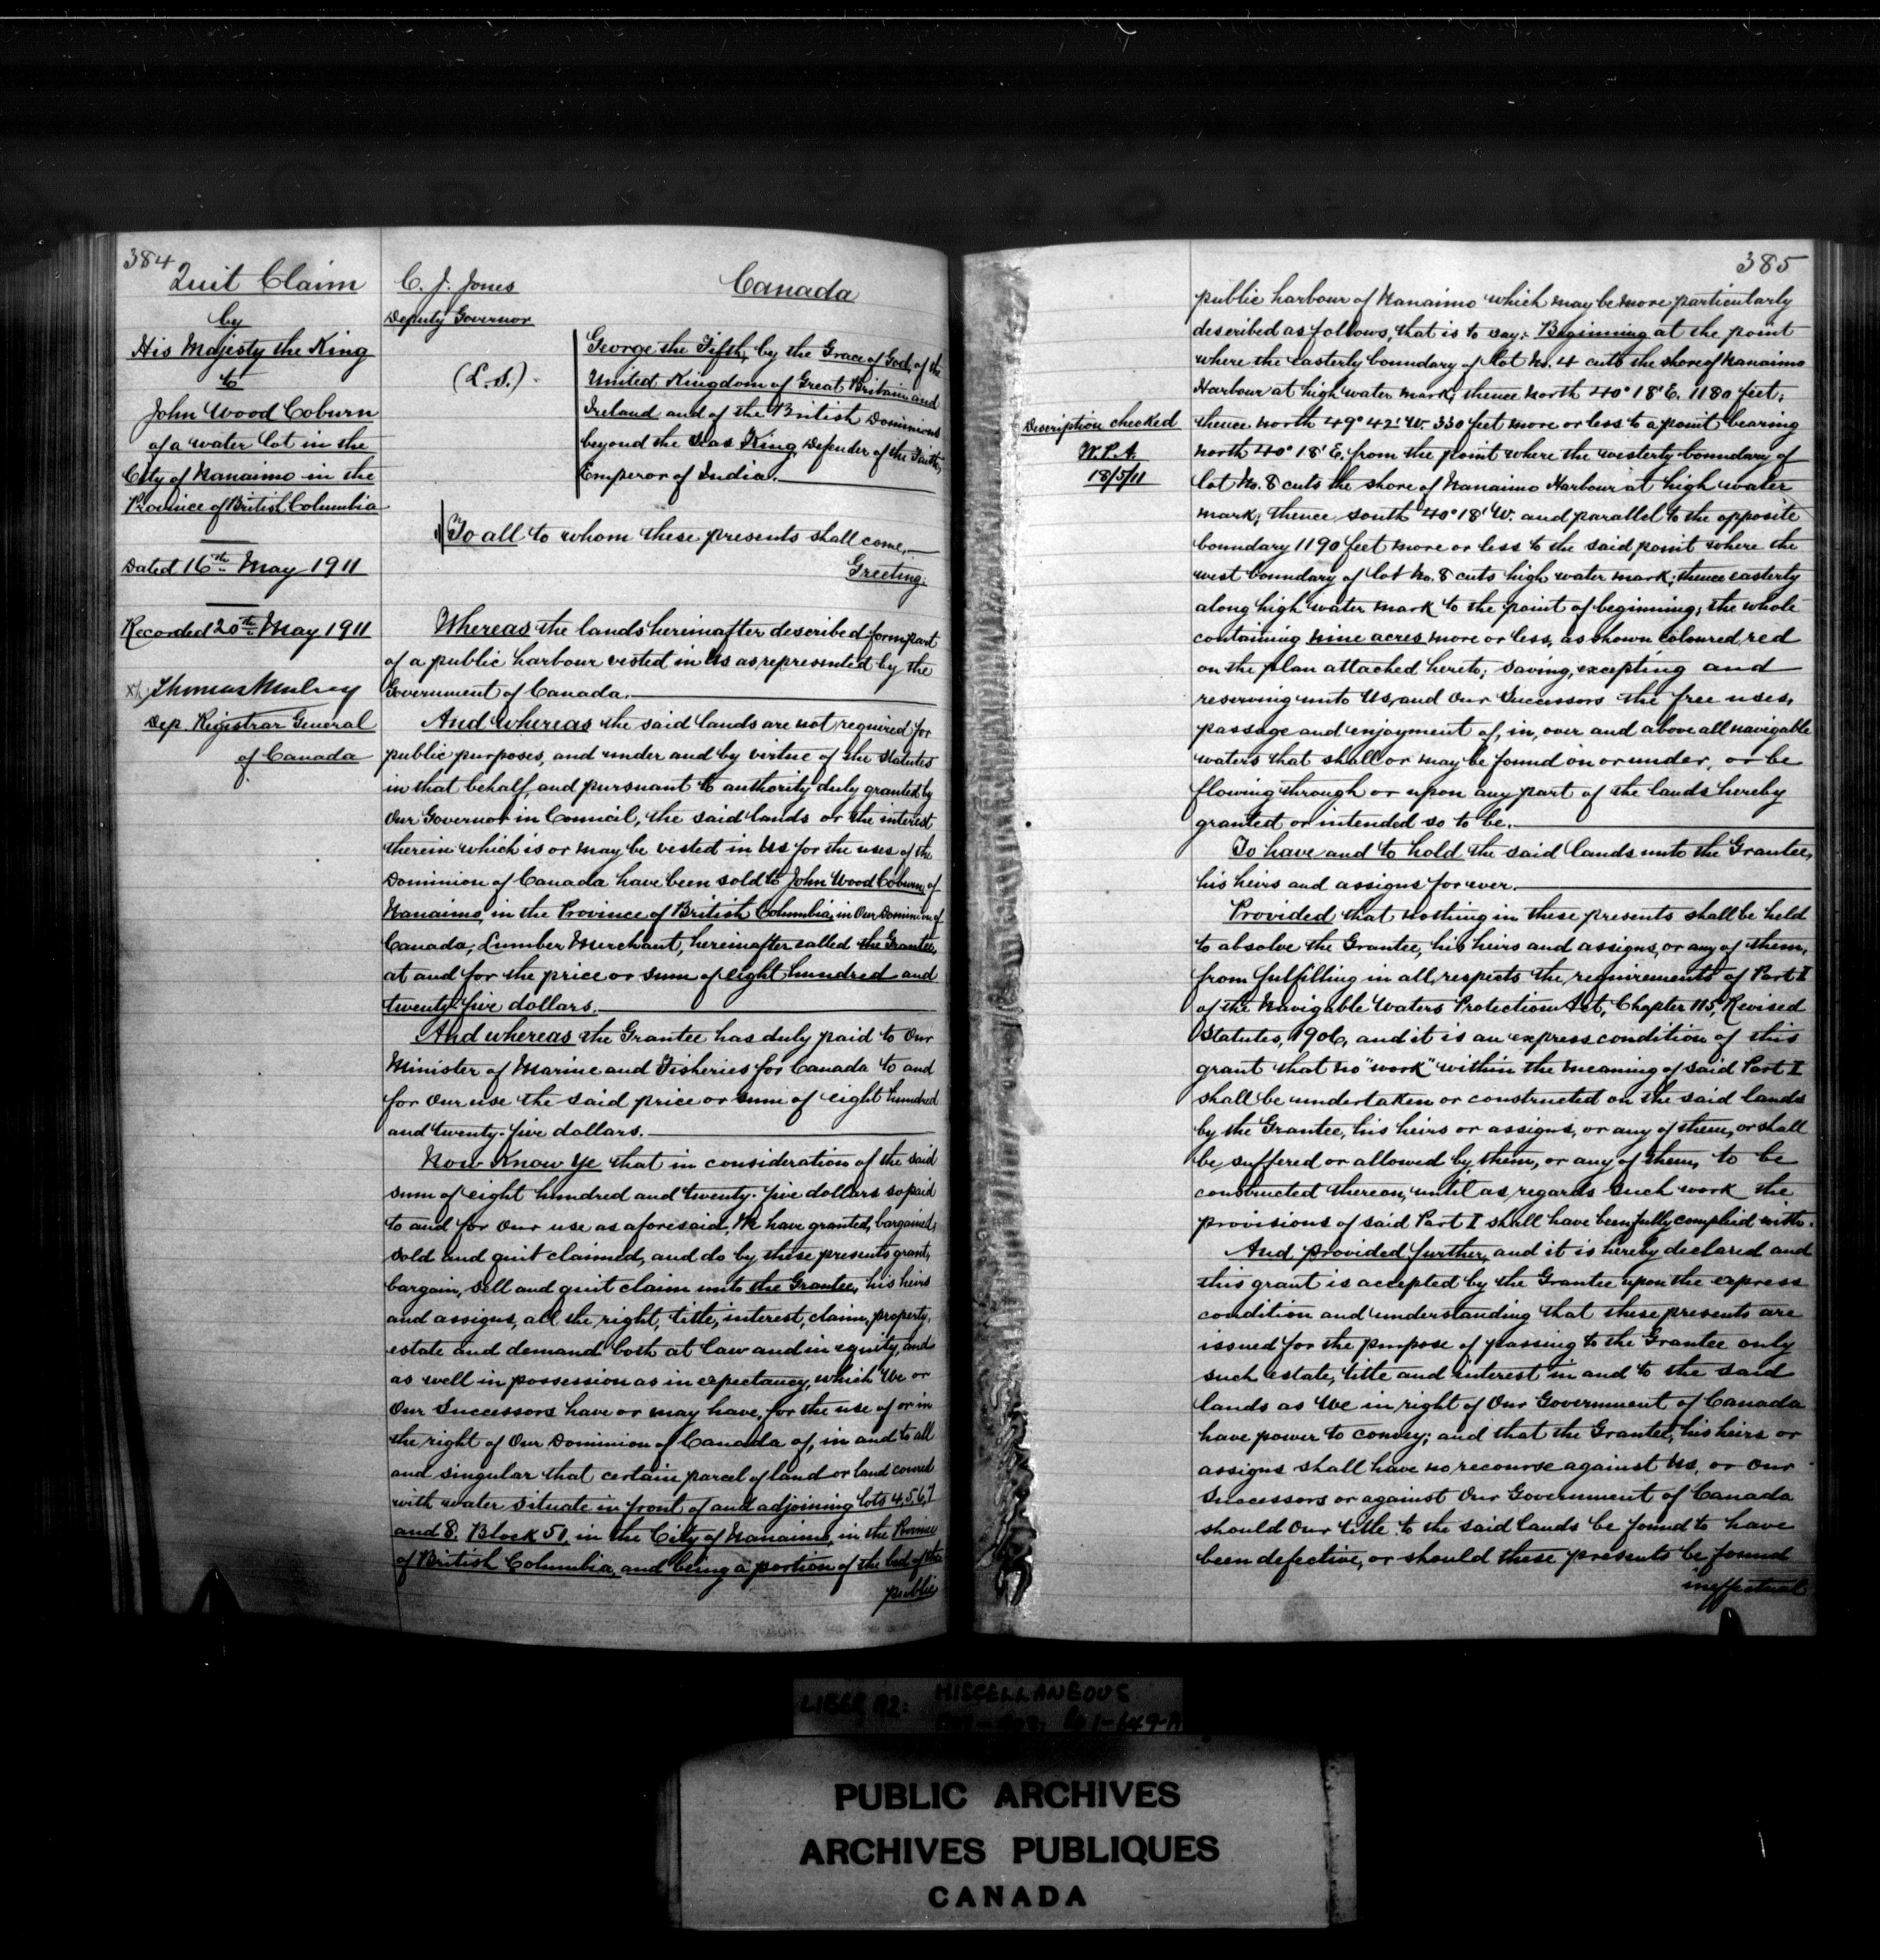 384
Quit Claim
by
His Majesty the King
to
John Wood Coburn
of a water lot in the
City of Nanaimo in the
Province of British Columbia
Dated 16th May 1911
Recorded 20th May 1911
Thomas Mulvey
Dep. Registrar General
of Canada
C. J. Jones
Deputy Governor
(L.S.)
Canada
George the Fifth, by the Grace of God, of the
United Kingdom of Great Britain and
Ireland and of the British Dominions
beyond the Seas King, Defender of the Faith,
Emperor of India.
To all to whom these presents shall come,
Greeting:
Whereas the lands hereinafter described form part
of a public harbour vested in Us as represented by the
Government of Canada.
And whereas the said lands are not required for
public purposes, and under and by virtue of the Statutes
in that behalf, and pursuant to authority duly granted by
Our Governor in Council, the said lands or the interest
therein which is or may be vested in Us for the uses of the
Dominion of Canada have been sold to John Wood Coburn, of
Nanaimo, in the Province of British Columbia, in Our Dominion of
Canada, Lumber Merchant, hereinafter called the Grantee,
at and for the price or sum of eight hundred and
twenty-five dollars.
And whereas the Grantee has duly paid to Our
Minister of Marine and Fisheries for Canada to and
for Our use the said price or sum of eight hundred
and twenty-five dollars.
Now Know Ye that in consideration of the said
sum of eight hundred and twenty-five dollars so paid
to and for Our use as aforesaid, We have granted, bargained,
sold and quit claimed, and do by these presents grant,
bargain, sell and quit claim unto the Grantee, his heirs
and assigns, all the right, title, interest, claim, property,
estate and demand both at law and in equity, and
as well in possession as in expectancy, which We or
Our Successors have or may have, for the use of or in
the right of Our Dominion of Canada of, in and to all
and singular that certain parcel of land or land covered
with water situate in front of and adjoining lots 4, 5, 6, 7
and 8, Block 51, in the City of Nanaimo, in the Province
of British Columbia, and being a portion of the bed of the
public
385
public harbour of Nanaimo which may be more particularly
described as follows, that is to say: Beginning at the point
where the easterly boundary of lot No. 4 cuts the shore of Nanaimo
Harbour at high water mark; thence North 40° 18' E. 1180 feet;
thence North 49° 42' W. 330 feet more or less to a point bearing
North 40° 18' E. from the point where the westerly boundary of
lot No. 8 cuts the shore of Nanaimo Harbour at high water
mark; thence South 40° 18' W. and parallel to the opposite
boundary 1190 feet more or less to the said point where the
west boundary of lot No. 8 cuts high water mark; thence easterly
along high water mark to the point of beginning; the whole
containing nine acres more or less, as shown coloured red
on the plan attached hereto; saving, excepting and
reserving unto Us, and Our Successors the free uses,
passage and enjoyment of, in, over and above all navigable
waters that shall or may be found on or under, or be
flowing through or upon any part of the lands hereby
granted or intended so to be.
To have and to hold the said lands unto the Grantee,
his heirs and assigns forever.
Provided that nothing in these presents shall be held
to absolve the Grantee, his heirs and assigns, or any of them,
from fulfilling in all respects the requirements of Part I
of the Navigable Waters Protection Act, Chapter 115, Revised
Statutes, 1906, and it is an express condition of this
grant that no "work" within the meaning of said Part I
shall be undertaken or constructed on the said lands
by the Grantee, his heirs or assigns, or any of them, or shall
be suffered or allowed by them, or any of them, to be
constructed thereon, until as regards such work the
provisions of said Part I shall have been fully complied with.
And provided further, and it is hereby declared and
this grant is accepted by the Grantee upon the express
condition and understanding that these presents are
issued for the purpose of passing to the Grantee only
such estate, title and interest in and to the said
lands as We in right of Our Government of Canada
have power to convey; and that the Grantee, his heirs or
assigns shall have no recourse against Us, or Our
Successors or against Our Government of Canada
should Our title to the said lands be found to have
been defective, or should these presents be found
ineffectual
Description checked
W.P.A.
18/5/11
LIBER 92: MISCELLANEOUS
PUBLIC ARCHIVES
ARCHIVES PUBLIQUES
CANADA